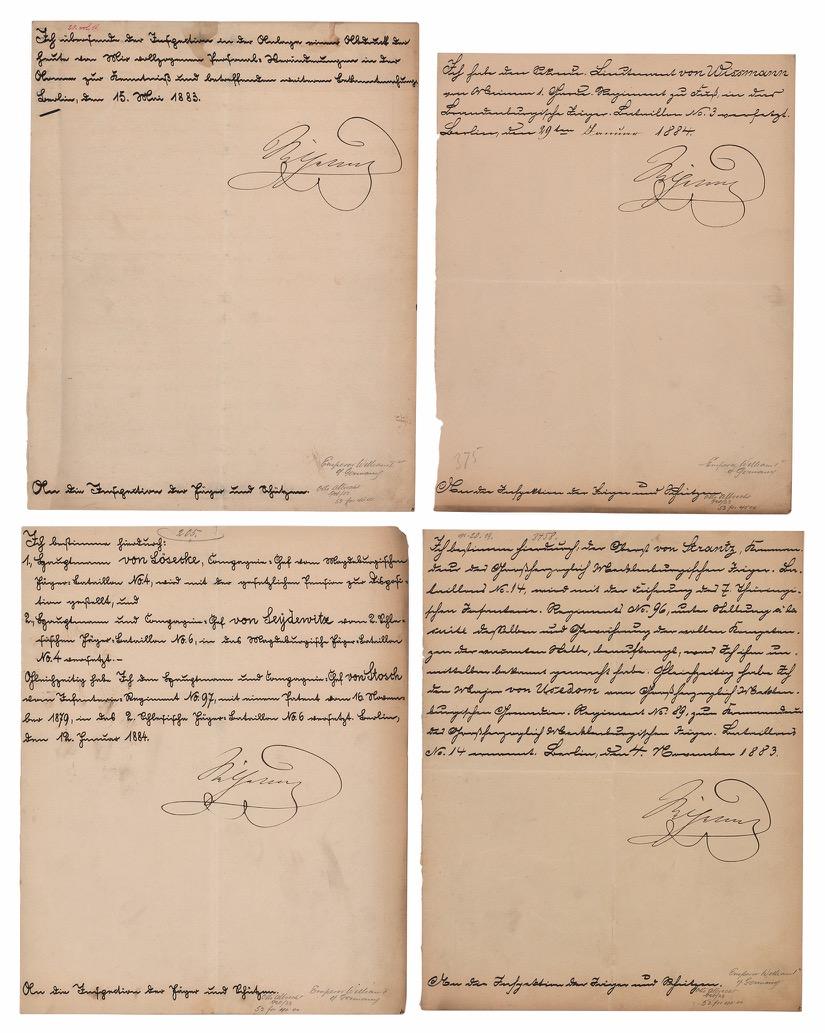 Ich übersende der Inspection in der Anlage einen Abdruck der
heute von Mir vollzogenen Personal-Veränderungen in der
Armee zur Kenntniß und betreffenden weiteren Bekanntmachung.
Berlin, den 15. Mai 1883.
Wilhelm
Emperor William I
of Germany
An die Inspection der Jäger und Schützen.
Ich habe den Lieutenant von Wissmann
vom 1. Garde-Regiment zu Fuß, in das
Brandenburgische Jäger-Bataillon No. 3 versetzt.
Berlin, den 29ten Januar 1884.
Wilhelm
375
Emperor William I
of Germany
An die Inspektion der Jäger und Schützen.
205.
Ich bestimme hierdurch:
1, Hauptmann von Lösecke, Compagnie-Chef vom Magdeburgischen
Jäger-Bataillon No. 4, wird mit der gesetzlichen Pension zur Disposi-
tion gestellt, und
2, Hauptmann und Compagnie-Chef von Seydewitz vom 2. Schle-
sischen Jäger-Bataillon No. 6, in das Magdeburgische Jäger-Bataillon
No. 4 versetzt. –
Gleichzeitig habe Ich den Hauptmann und Compagnie-Chef von Stosch
vom Infanterie-Regiment No. 97, mit einem Patent vom 16. Novem-
ber 1879, in das 2. Schlesische Jäger-Bataillon No. 6 versetzt. Berlin,
den 12. Januar 1884.
Wilhelm
An die Inspection der Jäger und Schützen.
Emperor William I
of Germany
Ich bestimme hierdurch, daß Oberst von Strantz, Komman-
deur des Großherzoglich Mecklenburgischen Jäger-Ba-
taillons No. 14, wird mit der Führung des 7. Thüringi-
schen Infanterie-Regiments No. 96, unter Stellung à la
suite desselben und Gewährung der vollen Kompeten-
zen der vacanten Stelle, beauftragt, was Ich ihm un-
mittelbar bekannt gemacht habe. Gleichzeitig habe Ich
den Major von Usedom vom Großherzoglich Mecklen-
burgischen Grenadier-Regiment No. 89, zum Kommandeur
des Großherzoglich Mecklenburgischen Jäger-Bataillons
No. 14 ernannt. Berlin, den 4. November 1883.
Wilhelm
Emperor William I
of Germany
An die Inspektion der Jäger und Schützen.